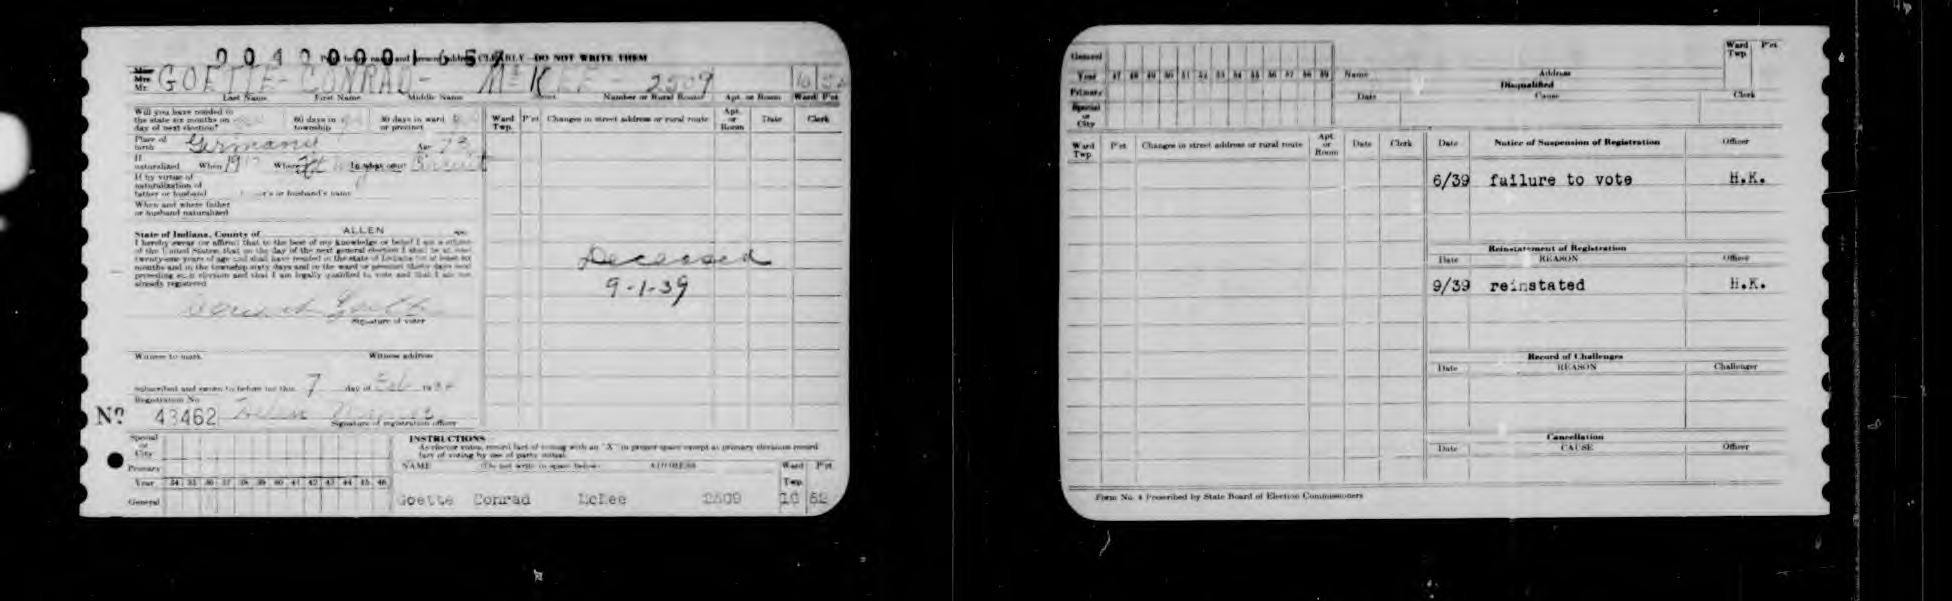 2042000165
CLEARLY—DO NOT WRITE THEM
Miss
Mrs.
Mr. GOETTE - CONRAD - McKEE 2509 10 52
Last Name First Name Middle Name Street Number or Rural Route Apt. or Room Ward P'ct
Will you have resided in
the state six months on
day of next election?
60 days in
township
30 days in ward
or precinct
Place of
birth Germany Age 73
If
naturalized When Where In what court Circuit
If by virtue of
naturalization of
father or husband
father's or husband's name
When and where father
or husband naturalized
State of Indiana, County of ALLEN
I hereby swear (or affirm) that to the best of my knowledge or belief I am a citizen
of the United States; that on the day of the next general election I shall be at least
twenty-one years of age and shall have resided in the state of Indiana for at least six
months and in the township sixty days and in the ward or precinct thirty days next
preceding such election and that I am legally qualified to vote and that I am not
already registered
Conrad Goette
Signature of voter
Witness to mark Witness address
Subscribed and sworn to before me this 7 day of Feb 19
Registration No.
No 43462 Helen
Signature of registration officer
Ward
Twp. P'ct Changes in street address or rural route Apt.
or
Room Date Clerk
Deceased
9-1-39
Special
or
City
Primary
Year 34 35 36 37 38 39 40 41 42 43 44 45 46
General
INSTRUCTIONS
As elector votes, record fact of voting with an "X" in proper space except at primary elections record
fact of voting by use of party initial.
NAME (Do not write in space below) ADDRESS Ward
Twp. P'ct
Goette Conrad McKee 2509 10 52
General
Year 47 48 49 50 51 52 53 54 55 56 57 58 59
Primary
Special
or
City
Name Address
Ward
Twp. P'ct
Disqualified
Date Cause Clerk
Ward
Twp. P'ct Changes in street address or rural route Apt.
or
Room Date Clerk
Date Notice of Suspension of Registration Officer
6/39 failure to vote H.K.
Reinstatement of Registration
Date REASON Officer
9/39 reinstated H.K.
Record of Challenges
Date REASON Challenger
Cancellation
Date CAUSE Officer
Form No. 4 Prescribed by State Board of Election Commissioners